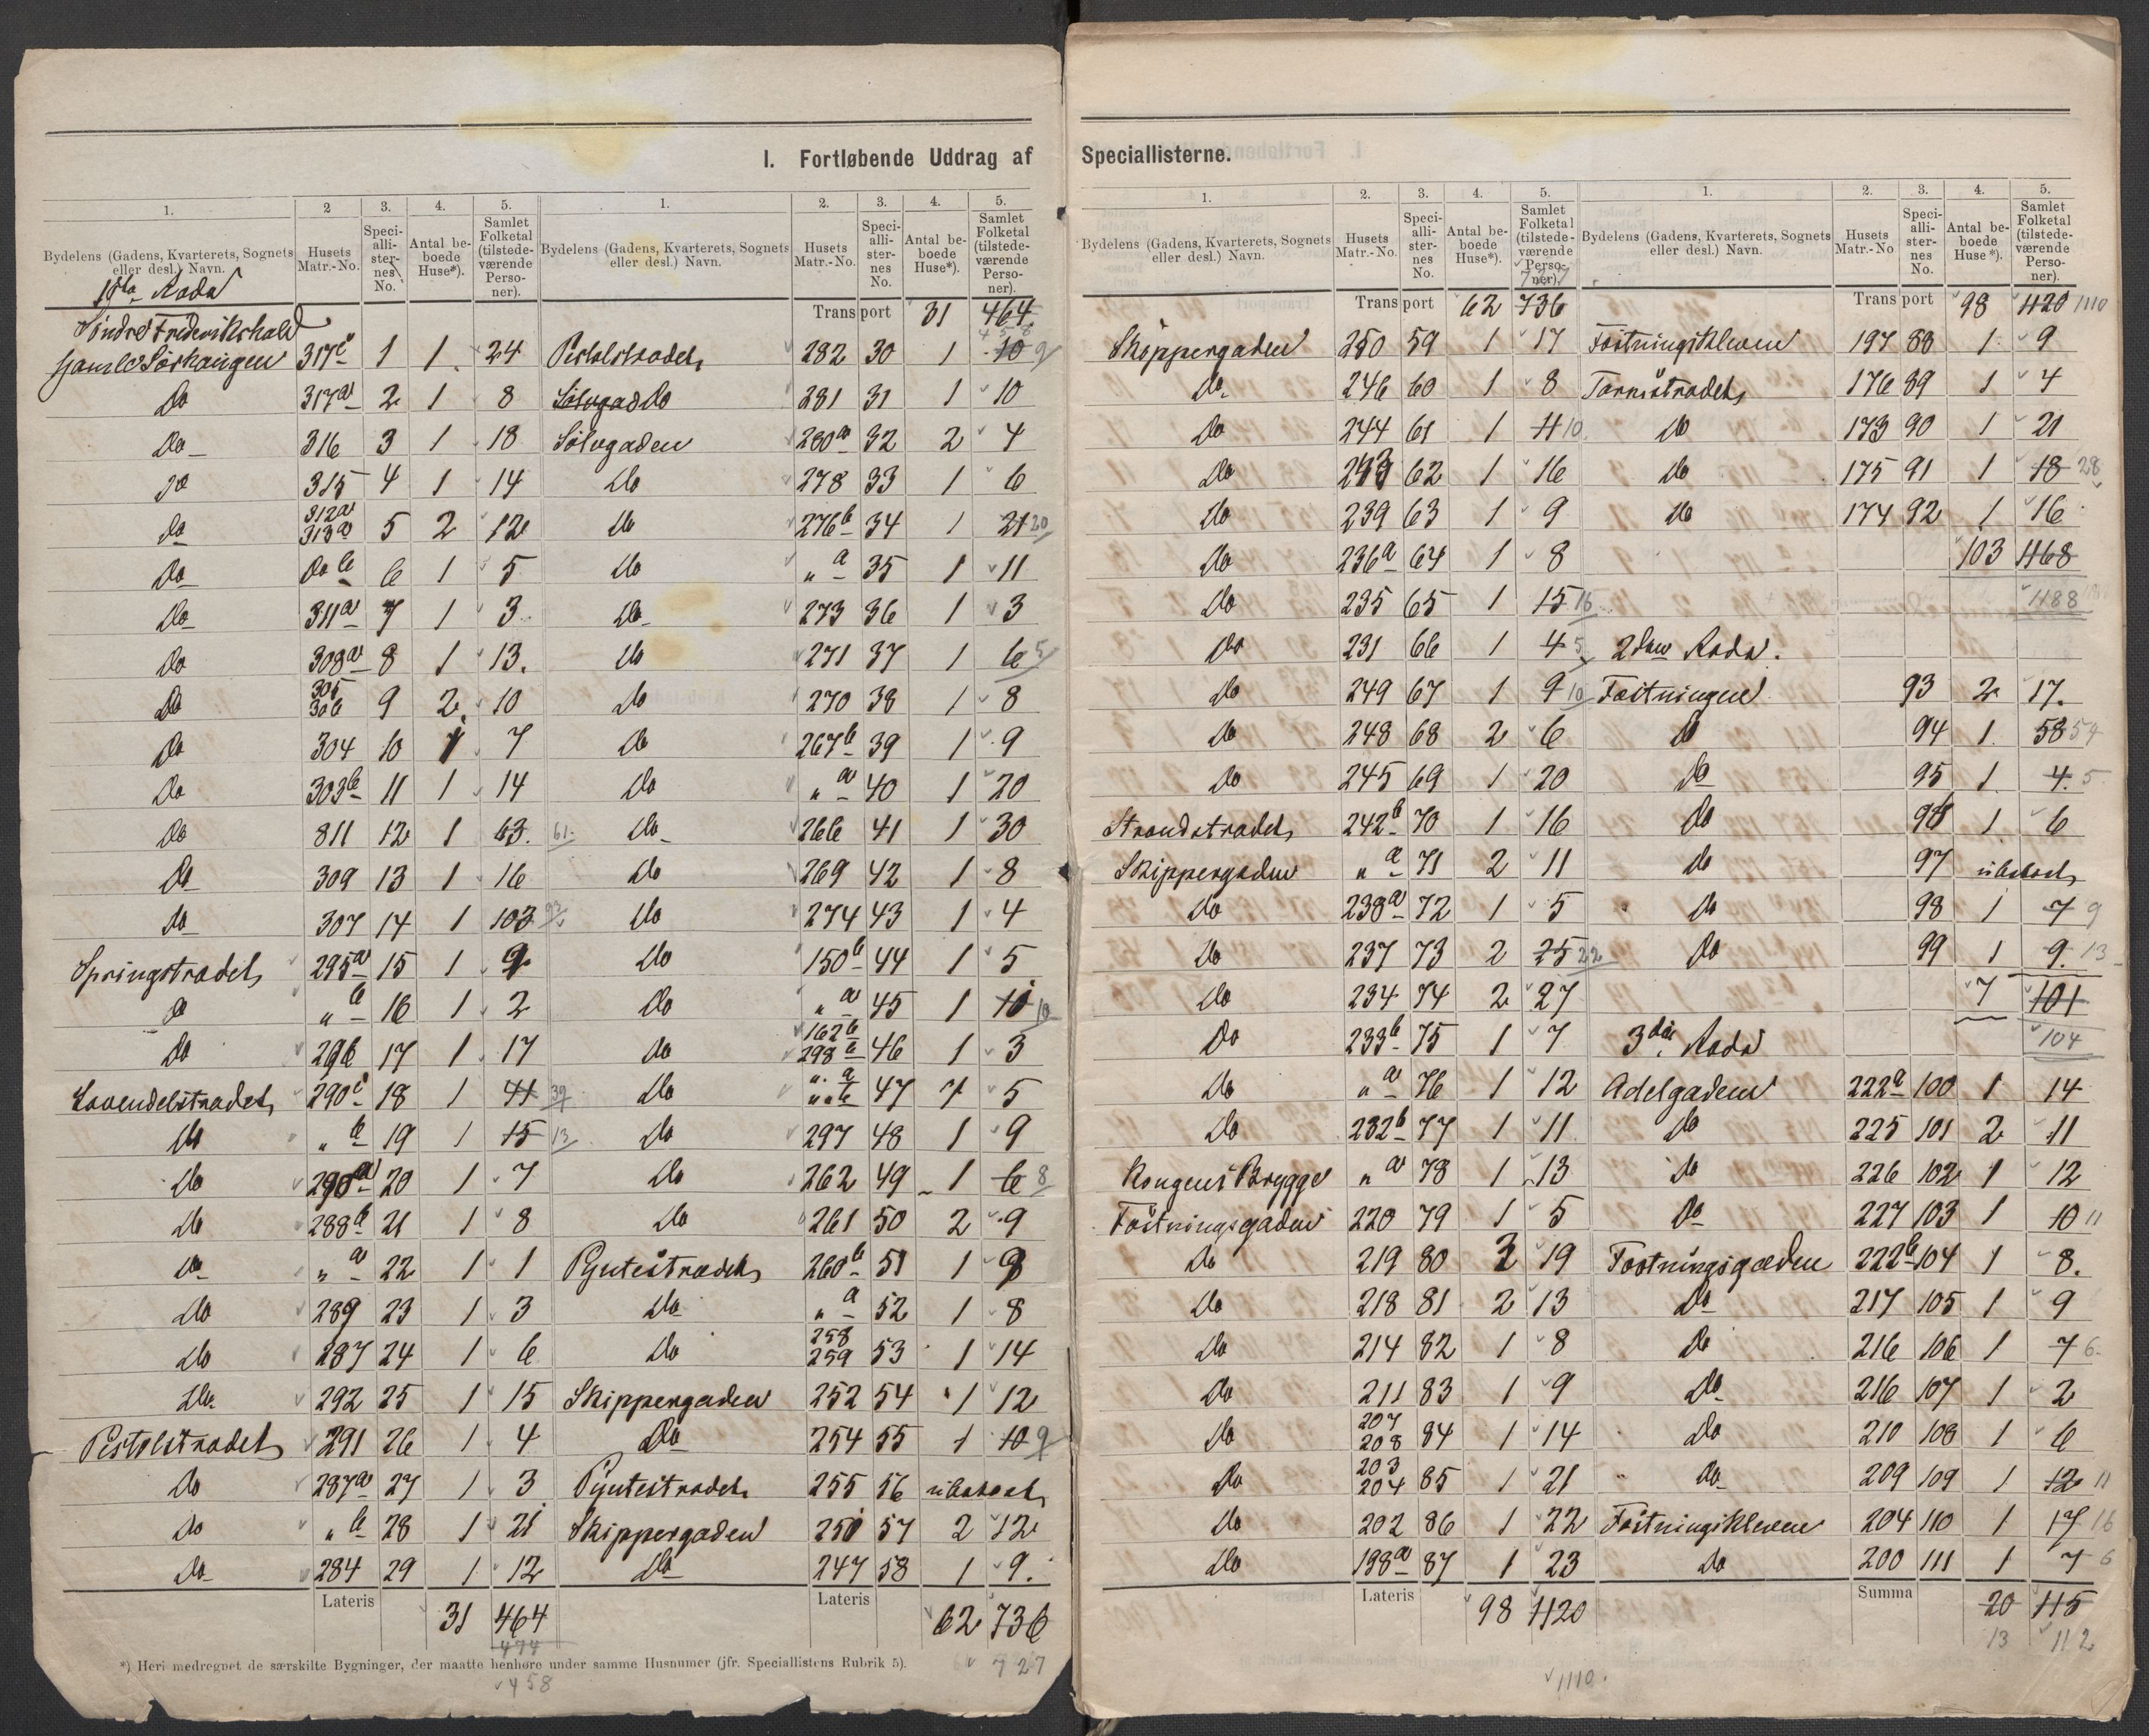 I. Fortløbende Uddrag af Speciallisterne.
1. 2 3. 4. 5. 1. 2. 3. 4. 5.
Bydelens (Gadens, Kvarterets, Sognets eller desl.) Navn. Husets Matr.-No. Speciallisternes No. Antal beboede Huse*). Samlet Folketal (tilstedeværende Personer). Bydelens (Gadens, Kvarterets, Sognets eller desl.) Navn. Husets Matr.-No. Speciallisternes No. Antal beboede Huse*). Samlet Folketal (tilstedeværende Personer).
1ste Rode
Transport 31 464 458
Söndre Frederikshald
Gamle 317c 1 1 24 Pistolstrædet 282 30 1 10 9
Do 317a 2 1 8 Sølvgad Do 281 31 1 10
Do 316 3 1 18 Sølvgaden 280a 32 2 4
Do 315 4 1 14 Do 278 33 1 6
Do 312a 313a 5 2 12 Do 276b 34 1 21 20
Do Do b 6 1 5 Do " a 35 1 11
Do 311a 7 1 3 Do 273 36 1 3
Do 308a 8 1 13. Do 271 37 1 6 5
Do 305 306 9 2 10 Do 270 38 1 8
Do 304 10 1 7 Do 267b 39 1 9
Do 303b 11 1 14 Do " a 40 1 20
Do 811 12 1 63. 61 Do 266 41 1 30
Do 309 13 1 16 Do 269 42 1 8
Do 307 14 1 103 93 Do 274 43 1 4
Springstrædet 295a 15 1 9 Do 150b 44 1 5
Do " b 16 1 2 Do " a 45 1 10 10
Do 296 17 1 17 Do 162b 298b 46 1 3
Lavendelstrædet 290c 18 1 41 39 Do " a " b 47 1 5
Do " b 19 1 15 13 Do 297 48 1 9
Do 290a 20 1 7 Do 262 49 1 6 8
Do 288b 21 1 8 Do 261 50 2 9
Do " a 22 1 1 Pyntestrædet 260b 51 1 9
Do 289 23 1 3 Do " a 52 1 8
Do 287 24 1 6 Do 258 259 53 1 14
Do 292 25 1 15 Skippergaden 252 54 1 12
Pistolstrædet 291 26 1 4 Do 254 55 1 10 9
Do 287a 27 1 3 Pyntestrædet 255 56 ubeboet
Do " b 28 1 21 Skippergaden 250 57 2 12
Do 284 29 1 12 Do 247 58 1 9.
Lateris 31 464 Lateris 62 736
474 727
*) Heri medregnet de særskilte Bygninger, der maatte henhøre under samme Husnumer (jfr. Speciallistens Rubrik 5).
458
1. 2. 3. 4. 5. 1. 2. 3. 4. 5.
Bydelens (Gadens, Kvarterets, Sognets eller desl.) Navn. Husets Matr.-No. Speciallisternes No. Antal beboede Huse*). Samlet Folketal (tilstedeværende Personer). Bydelens (Gadens, Kvarterets, Sognets eller desl.) Navn. Husets Matr.-No Speciallisternes No. Antal beboede Huse*). Samlet Folketal (tilstedeværende Personer).
Transport 62 736 Transport 98 1120 1110
Skippergaden 250 59 1 17 Fæstningskleven 197 88 1 9
Do 246 60 1 8 Taarnstrædet 176 89 1 4
Do 244 61 1 11 10 Do 173 90 1 21
Do 243 62 1 16 Do 175 91 1 18 28
Do 239 63 1 9 Do 174 92 1 16
Do 236a 64 1 8 103 1168
Do 235 65 1 15 16 1188
Do 231 66 1 4 5 2den Rode.
Do 249 67 1 9 10 Fæstningen 93 2 17.
Do 248 68 2 6 Do 94 1 58 59
Do 245 69 1 20 Do 95 1 4. 5
Strandstrædet 242b 70 1 16 Do 96 1 6
Skippergaden " a 71 2 11 Do 97 ubeboet
Do 238a 72 1 5 Do 98 1 7 9
Do 237 73 2 25 22 Do 99 1 9. 13
Do 234 74 2 27 7 101
Do 233b 75 1 7 3die Rode 104
Do " a 76 1 12 Adelgaden 222a 100 1 14
Do 232b 77 1 11 Do 225 101 2 11
Kongens Brygge " a 78 1 13 Do 226 102 1 12
Fæstningsgaden 220 79 1 5 Do 227 103 1 10 11
Do 219 80 3 19 Fæstningsgaden 222b 104 1 8.
Do 218 81 2 13 Do 217 105 1 9
Do 214 82 1 8 Do 216 106 1 7 6
Do 211 83 1 9 Do 216 107 1 2
Do 207 208 84 1 14 Do 210 108 1 6
Do 203 204 85 1 21 Do 209 109 1 12 11
Do 202 86 1 22 Fæstningskleven 204 110 1 17 16
Do 198a 87 1 23 Do 200 111 1 7 6
Lateris 98 1120 Summa 20 115
13 112
1110.